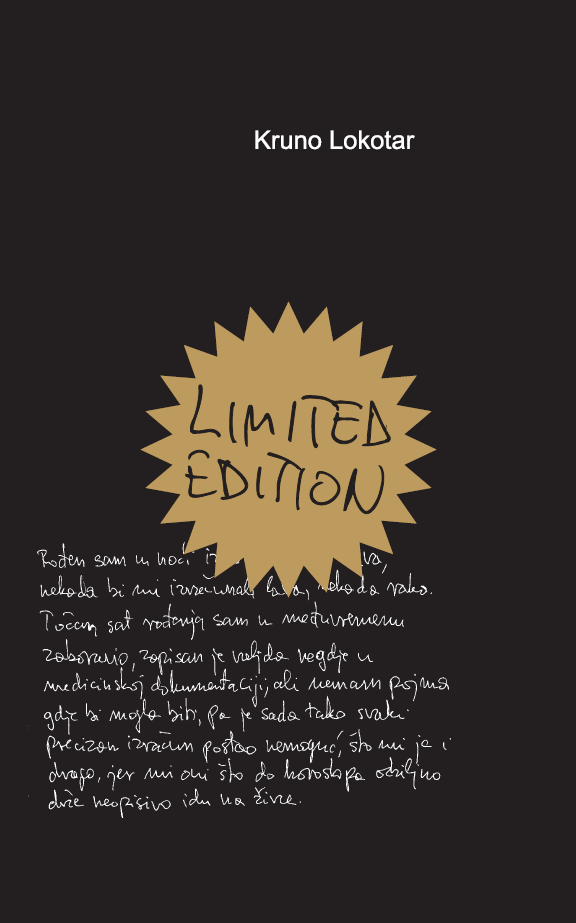 Kruno Lokotar
LIMITED
EDITION
Rođen sam u noći
nekada bi mi izračunali nekada vako.
Točan sat rođenja sam u međuvremenu
zaboravio, zapisan je valjda negdje u
medicinskoj dokumentaciji, ali nemam pojma
gdje bi mogla biti, pa je sada tako svaki
precizan izračun postao nemoguć, što mi je i
drago, jer mi oni što do horoskopa ozbiljno
drže neopisivo idu na živce.